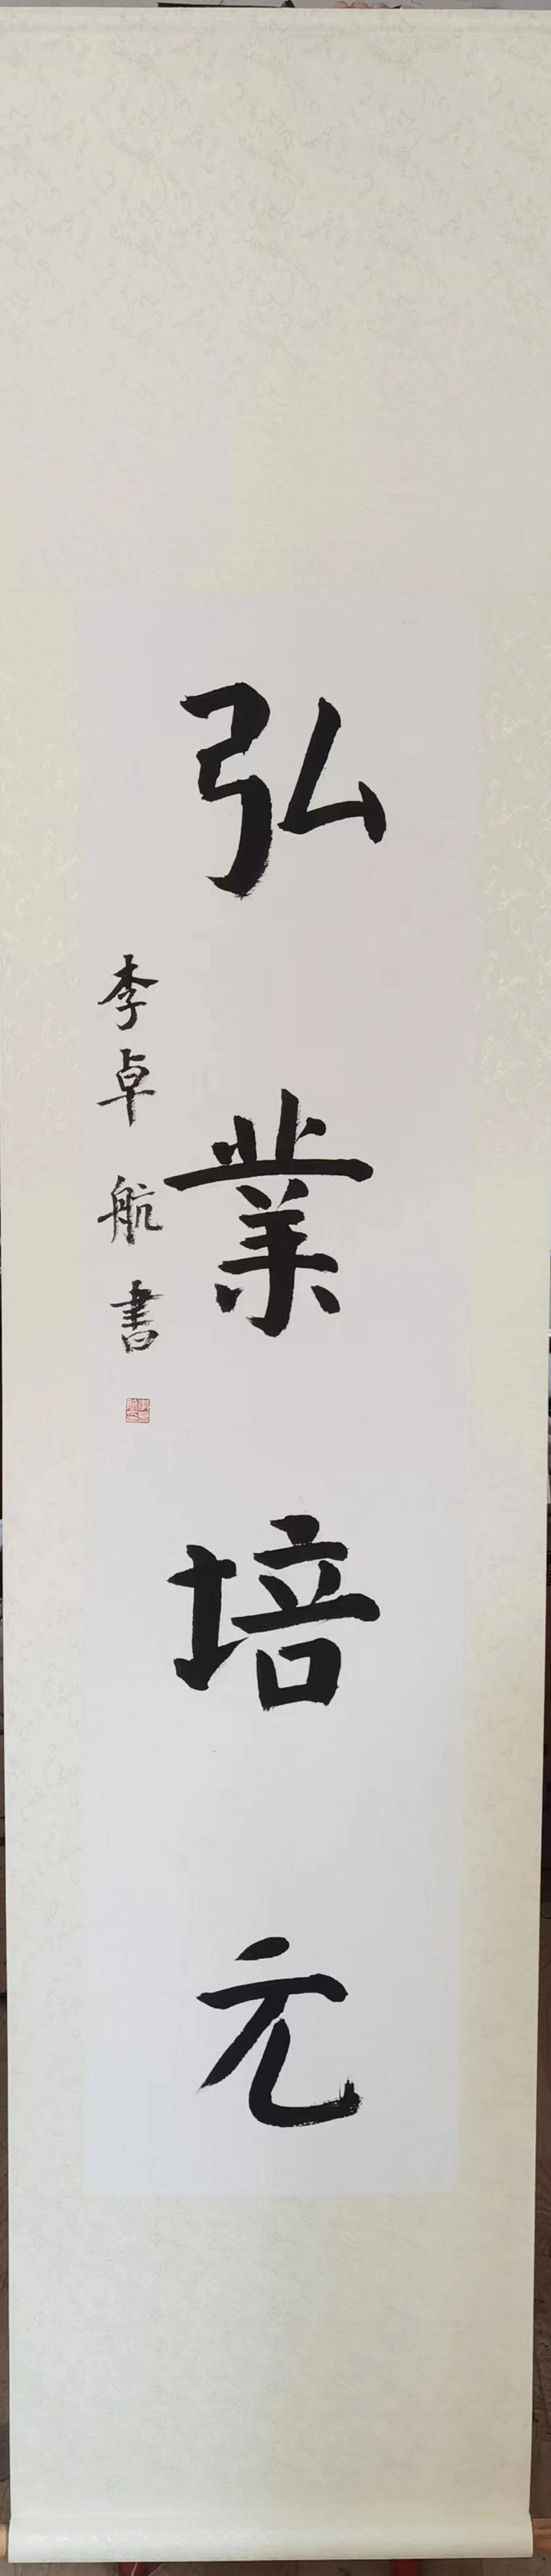 弘業培元
李卓航書